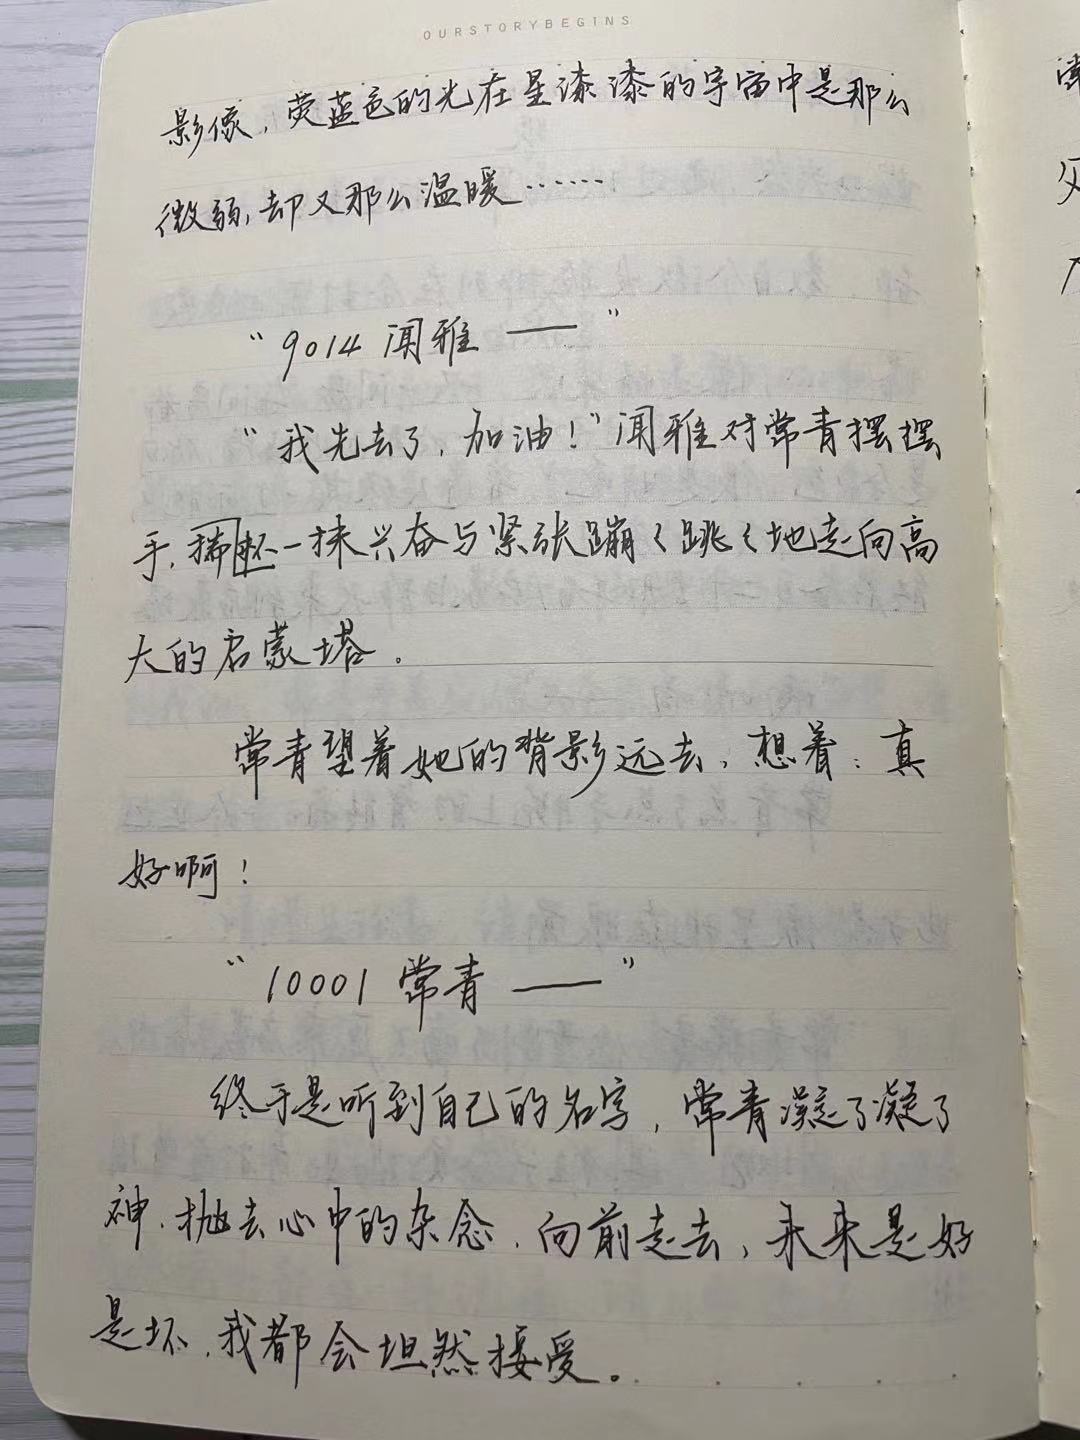 OURSTORYBEGINS
影像，荧蓝色的光在星漆漆的宇宙中是那么
微弱，却又那么温暖……
“9014 闻雅 ——”
“我先去了，加油！”闻雅对常青摆摆
手，一抹兴奋与紧张蹦々跳々地走向高
大的启蒙塔。
常青望着她的背影远去，想着：真
好啊！
“10001 常青 ——”
终于是听到自己的名字，常青凝了凝了
神，抛去心中的杂念，向前走去，未来是好
是坏，我都会坦然接受。